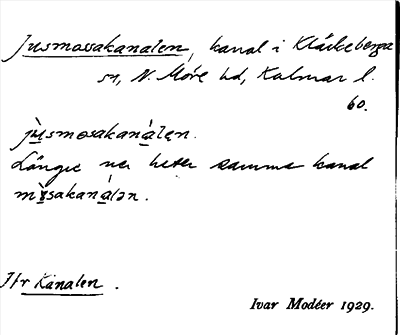 Jusmossakanalen, kanal i Kläckeberga
sn, N. Möre hd, Kalmar l.
60.
jùsmosakanàlen.
Längre ner heter samma kanal
mòsakanálən.
Jfr Kanalen.
Ivar Modéer 1929.